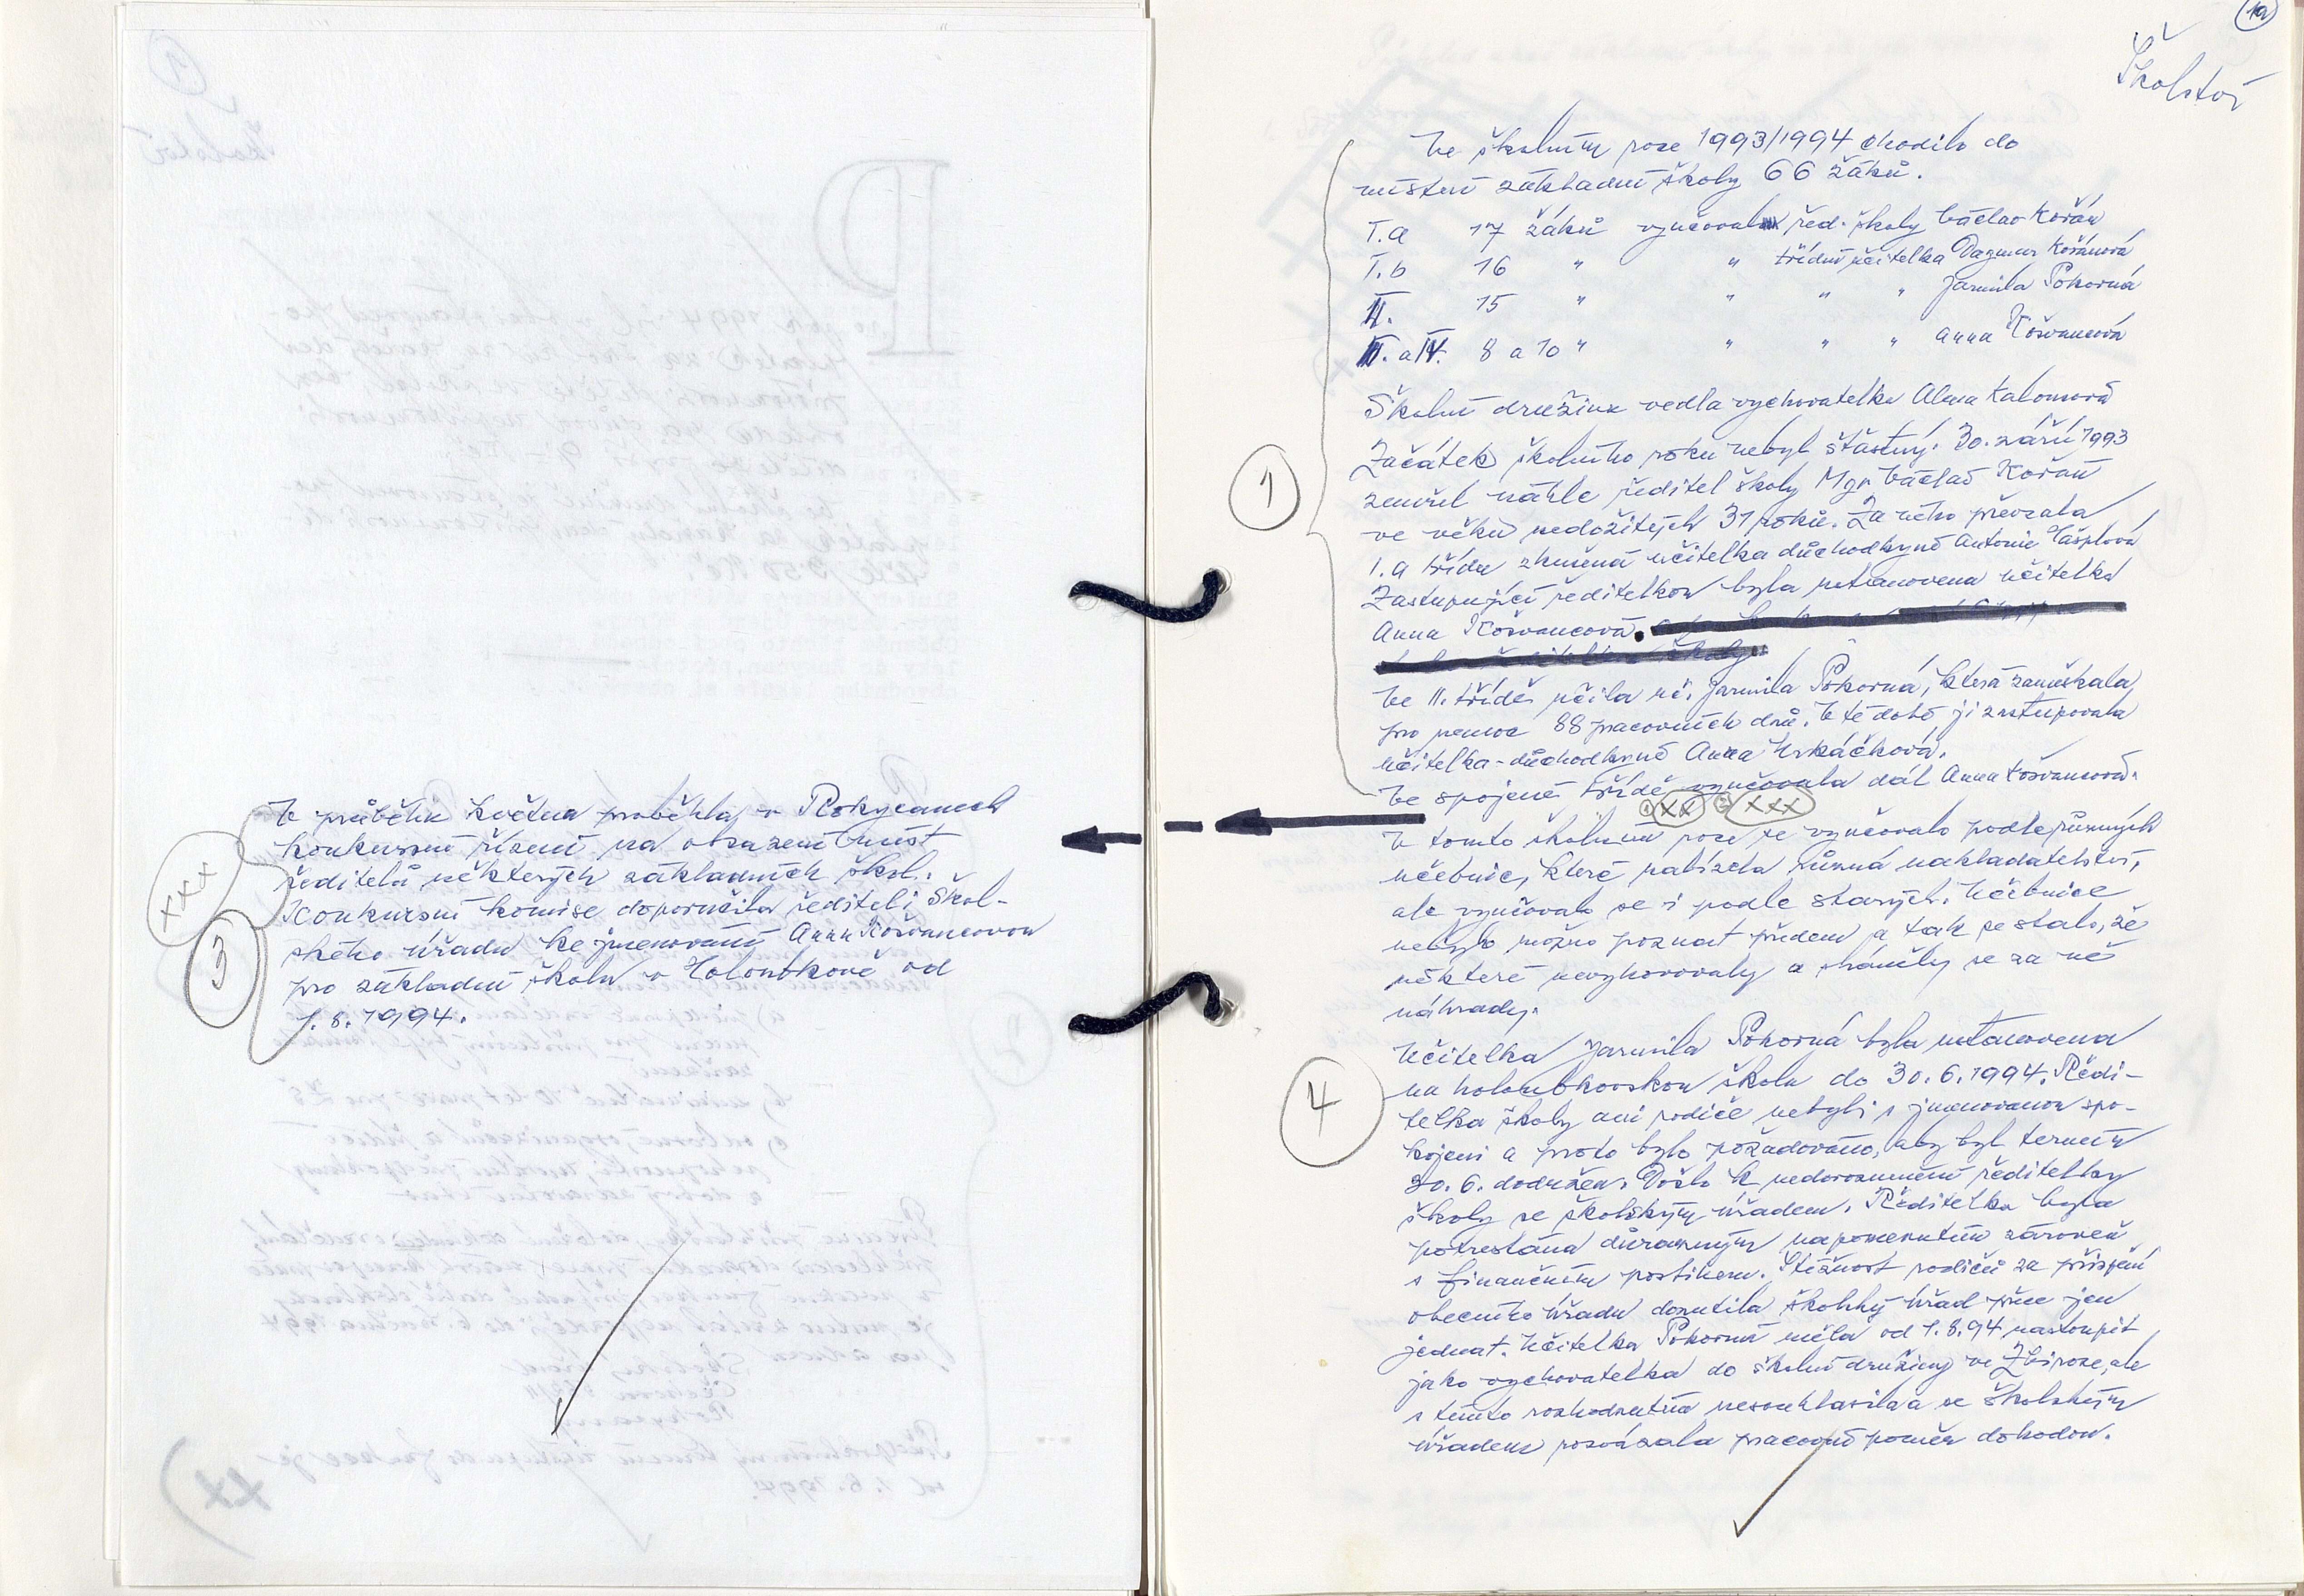 V průběhu května proběhla v Rokycanech
konkursní řízení na obsazení míst
ředitelů některých základních škol.
Konkursní komise doporučila řediteli Škol-
ského úřadu ke jmenování Annu Košvancovou
pro základní školu v Holoubkově od
1.8.1994.
xxx
3
1a
Školství
Ve školním roce 1993/1994 chodilo do
místní základní školy 66 žáků.
I.a 17 žáků vyučoval řed. školy Václav Kořán
I.b 16 " " třídní učitelka Dagmar Kořánová
II. 15 " " " " Jarmila Pokorná
III. a IV. 8 a 10 " " " " Anna Košvancová
Školní družinu vedla vychovatelka Alena
Začátek školního roku nebyl šťastný. 30. září 1993
zemřel náhle ředitel školy Mgr Václav Kořán
ve věku nedožitých 31 roků. Za něho převzala
I.a třídu zkušená učitelka důchodkyně Antonie
Zastupující ředitelkou byla ustanovena učitelka
Anna Košvancová.
Ve II. třídě učila uč. Jarmila Pokorná, která zameškala
pro nemoc 88 pracovních dnů. V té době ji zastupovala
učitelka-důchodkyně Anna Hrkáčková.
Ve spojené třídě vyučovala dál Anna Košvancová.
1
xx xxx
V tomto školním roce se vyučovalo podle různých
učebnic, které nabízela různá nakladatelství,
ale vyučovalo se i podle starých. Učebnice
nebylo možno poznat předem a tak se stalo, že
některé nevyhovovaly a sháněly se za ně
náhrady.
4
Učitelka Jarmila Pokorná byla ustanovena
na holoubkovskou školu do 30.6.1994. Ředi-
telka školy ani rodiče nebyli s jmenovanou spo-
kojeni a proto bylo požadováno, aby byl termín
30.6. dodržen. Došlo k nedorozumění ředitelky
školy se školským úřadem. Ředitelka byla
potrestána důrazným napomenutím zároveň
s finančním postihem. Stížnost rodičů za přispění
obecního úřadu donutila školský úřad přece jen
jednat. Učitelka Pokorná měla od 1.8.94 nastoupit
jako vychovatelka do školní družiny ve Zbiroze, ale
s tímto rozhodnutím nesouhlasila a se školským
úřadem rozvázala pracovní poměr dohodou.